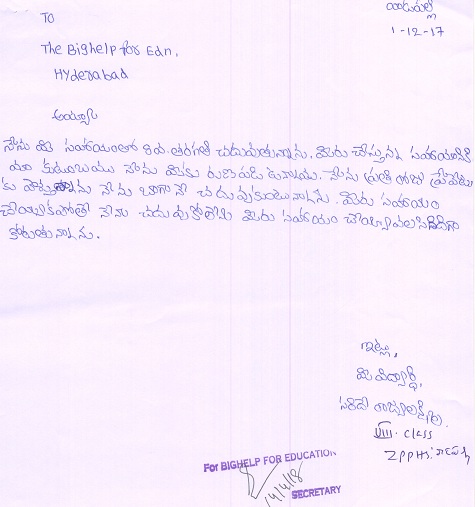 1-12-17
TO
The Bighelp for Edn,
Hyderabad
అయ్యా
నేను మీ సహాయంతో 8వ. తరగతి చదువుతున్నాను. మీరు చేస్తున్న సహాయానికి
మా కుటుంబము నేను మీకు రుణపడి ఉన్నాము. నేను ప్రతి రోజు
కు వస్తున్నాను నేను బాగానే చదువుకుంటున్నాను. మీరు సహాయం
చేయకపోతే నేను చదువుకోలేను మీరు సహాయం చేయవలసిందిగా
కోరుతున్నాను.
ఇట్లు,
మీ విద్యార్థి,
VIII. class
ZPPHS.
For BIGHELP FOR EDUCATION
14/4/18
SECRETARY